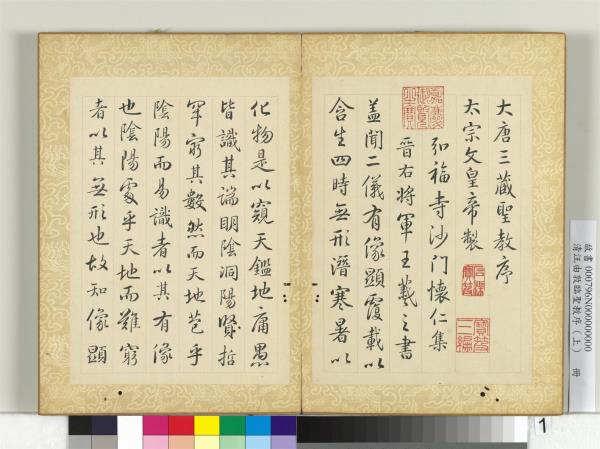 大唐三藏聖教序
太宗文皇帝製
弘福寺沙门懷仁集
晉右將軍王羲之書
盖聞二儀有像顯覆載以
含生四時無形潛寒暑以
化物是以窺天鑑地庸愚
皆識其端明陰洞陽賢哲
罕窮其數然而天地苞乎
陰陽而易識者以其有像
也陰陽處乎天地而難窮
者以其無形也故知像顯
嘉慶御覽之寶
石渠寶笈
寶笈三編
故書 000796N000000000
清汪由敦臨聖教序（上） 冊
1